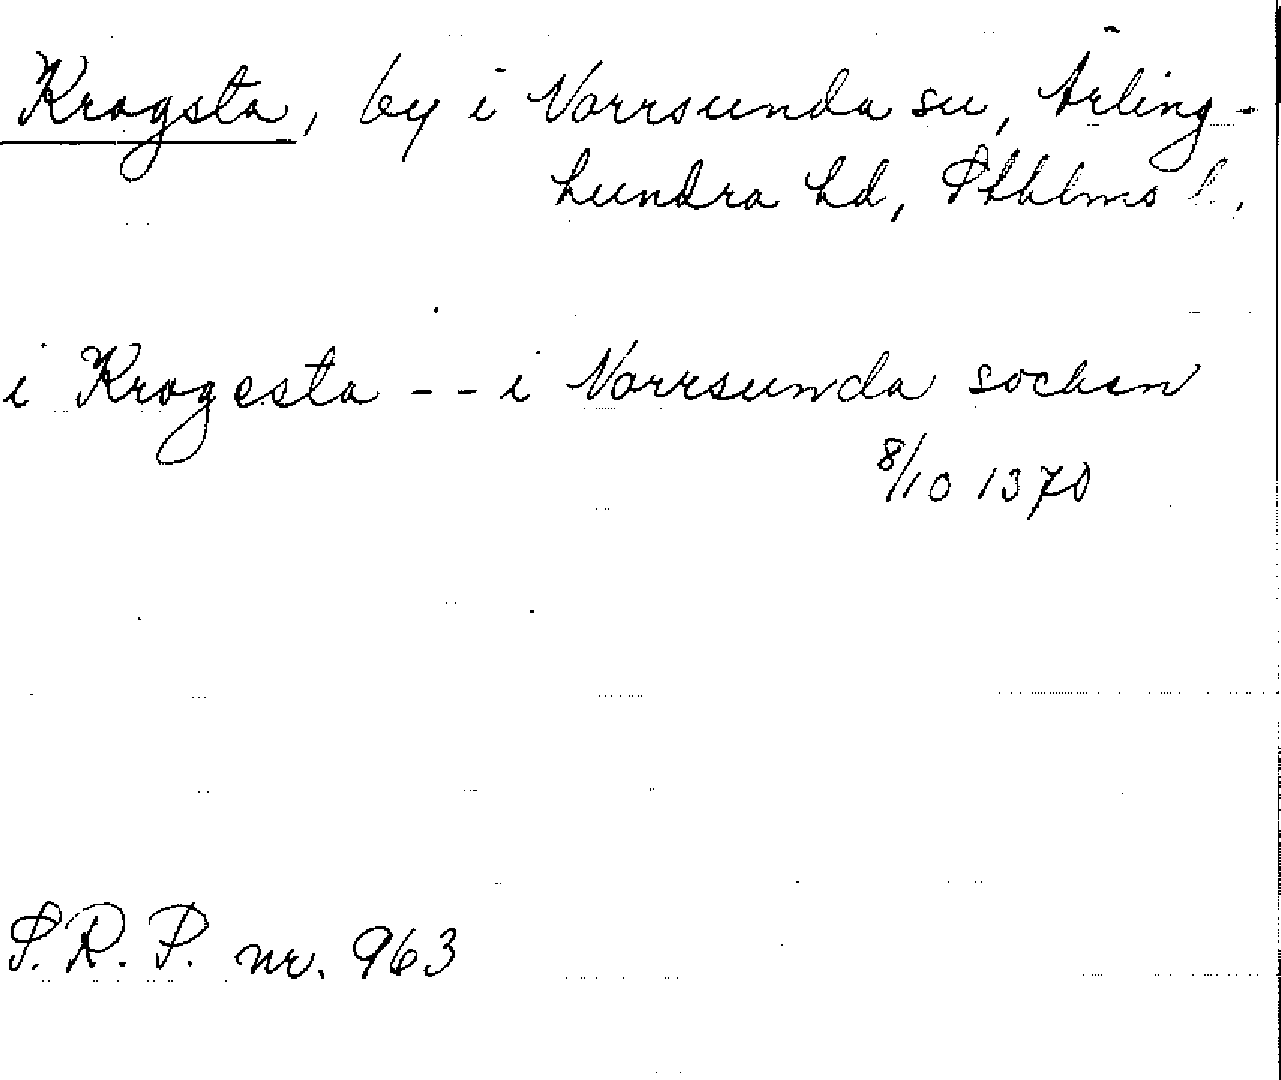 Krogsta, by i Norrsunda sn, Ärling-
hundra hd, Sthlms l.,
i Krogesta -- i Norrsunda sochen
8/10 1370
S.R.P. nr. 963